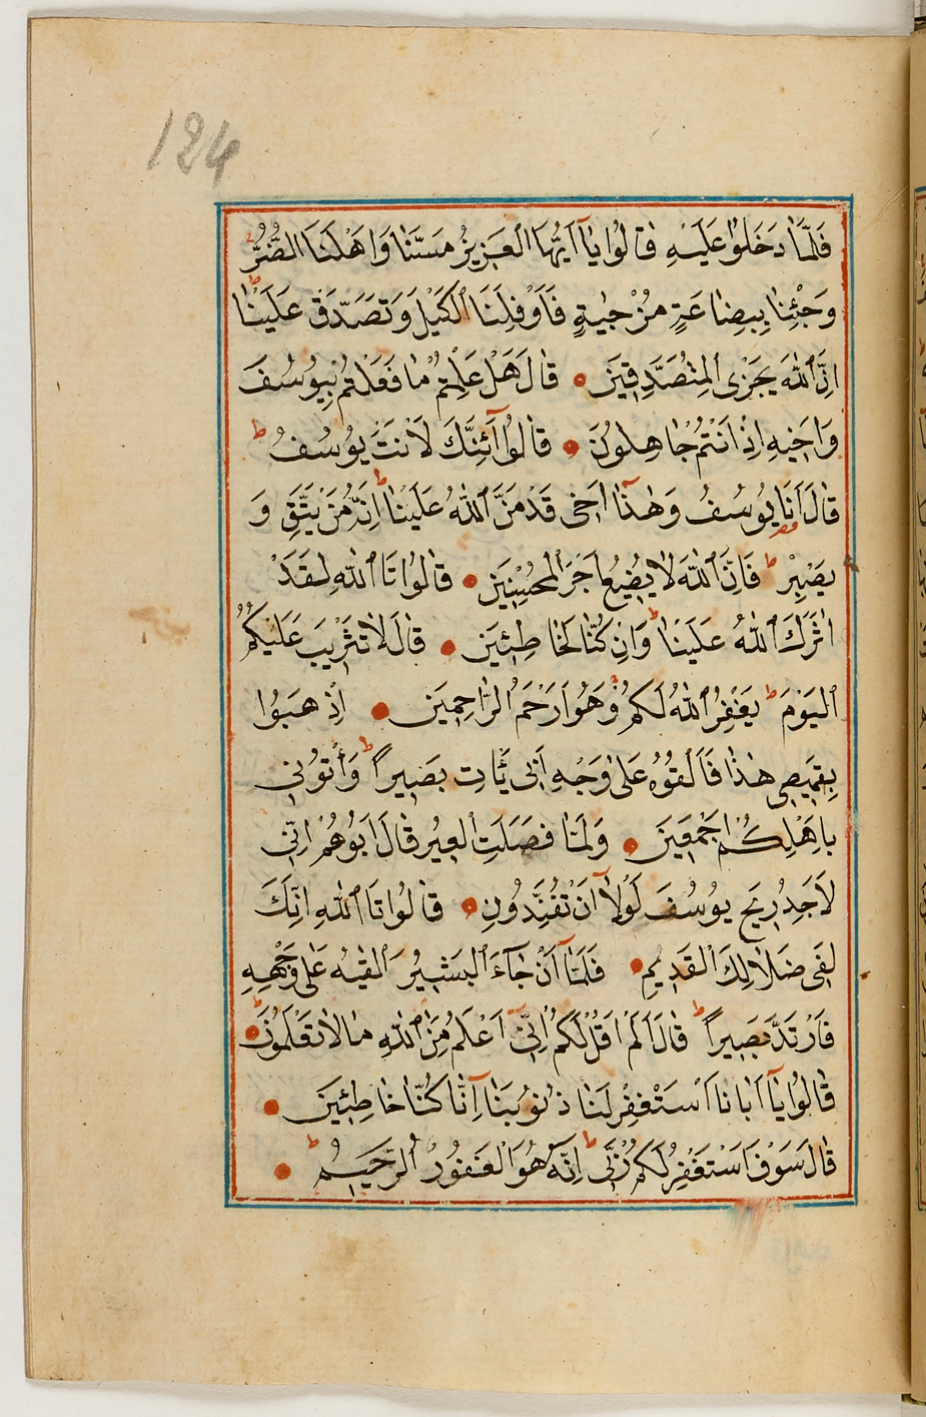 124
فَلَمَّا دَخَلُوا عَلَيْهِ قَالُوا يَا اَيُّهَا الْعَزِيزُ مَسَّنَا وَاَهْلَنَا الضُّرُّ
وَجِئْنَا بِبِضَاعَةٍ مُزْجٰيةٍ فَاَوْفِ لَنَا الْكَيْلَ وَتَصَدَّقْ عَلَيْنَا ط
اِنَّ اللّٰهَ يَجْزِى الْمُتَصَدِّقِينَ قَالَ هَلْ عَلِمْتُمْ مَا فَعَلْتُمْ بِيُوسُفَ
وَاَخِيهِ اِذْ اَنْتُمْ جَاهِلُونَ قَالُوا اَئِنَّكَ لَاَنْتَ يُوسُفُ ط
قَالَ اَنَا يُوسُفُ وَهٰذَا اَخِى قَدْ مَنَّ اللّٰهُ عَلَيْنَا ط اِنَّهُ مَنْ يَتَّقِ وَ
يَصْبِرْ ط فَاِنَّ اللّٰهَ لَا يُضِيعُ اَجْرَ الْمُحْسِنِينَ قَالُوا تَاللّٰهِ لَقَدْ
اٰثَرَكَ اللّٰهُ عَلَيْنَا ط وَاِنْ كُنَّا لَخَاطِئِينَ قَالَ لَا تَثْرِيبَ عَلَيْكُمُ
الْيَوْمَ ط يَغْفِرُ اللّٰهُ لَكُمْ وَهُوَ اَرْحَمُ الرَّاحِمِينَ اِذْهَبُوا
بِقَمِيصِى هٰذَا فَاَلْقُوهُ عَلٰى وَجْهِ اَبِى يَاْتِ بَصِيراً ط وَأْتُونِى
بِاَهْلِكُمْ اَجْمَعِينَ وَلَمَّا فَصَلَتِ الْعِيرُ قَالَ اَبُوهُمْ اِنِّى
لَاَجِدُ رِيحَ يُوسُفَ لَوْلَا اَنْ تُفَنِّدُونِ قَالُوا تَاللّٰهِ اِنَّكَ
لَفِى ضَلَالِكَ الْقَدِيمِ فَلَمَّا اَنْ جَاءَ الْبَشِيرُ اَلْقٰيهُ عَلٰى وَجْهِهِ
فَارْتَدَّ بَصِيراً ط قَالَ اَلَمْ اَقُلْ لَكُمْ اِنِّى اَعْلَمُ مِنَ اللّٰهِ مَا لَا تَعْلَمُونَ
قَالُوا يَا اَبَانَا اسْتَغْفِرْ لَنَا ذُنُوبَنَا اِنَّا كُنَّا خَاطِئِينَ
قَالَ سَوْفَ اَسْتَغْفِرُ لَكُمْ رَبِّى ط اِنَّهُ هُوَ الْغَفُورُ الرَّحِيمُ ط